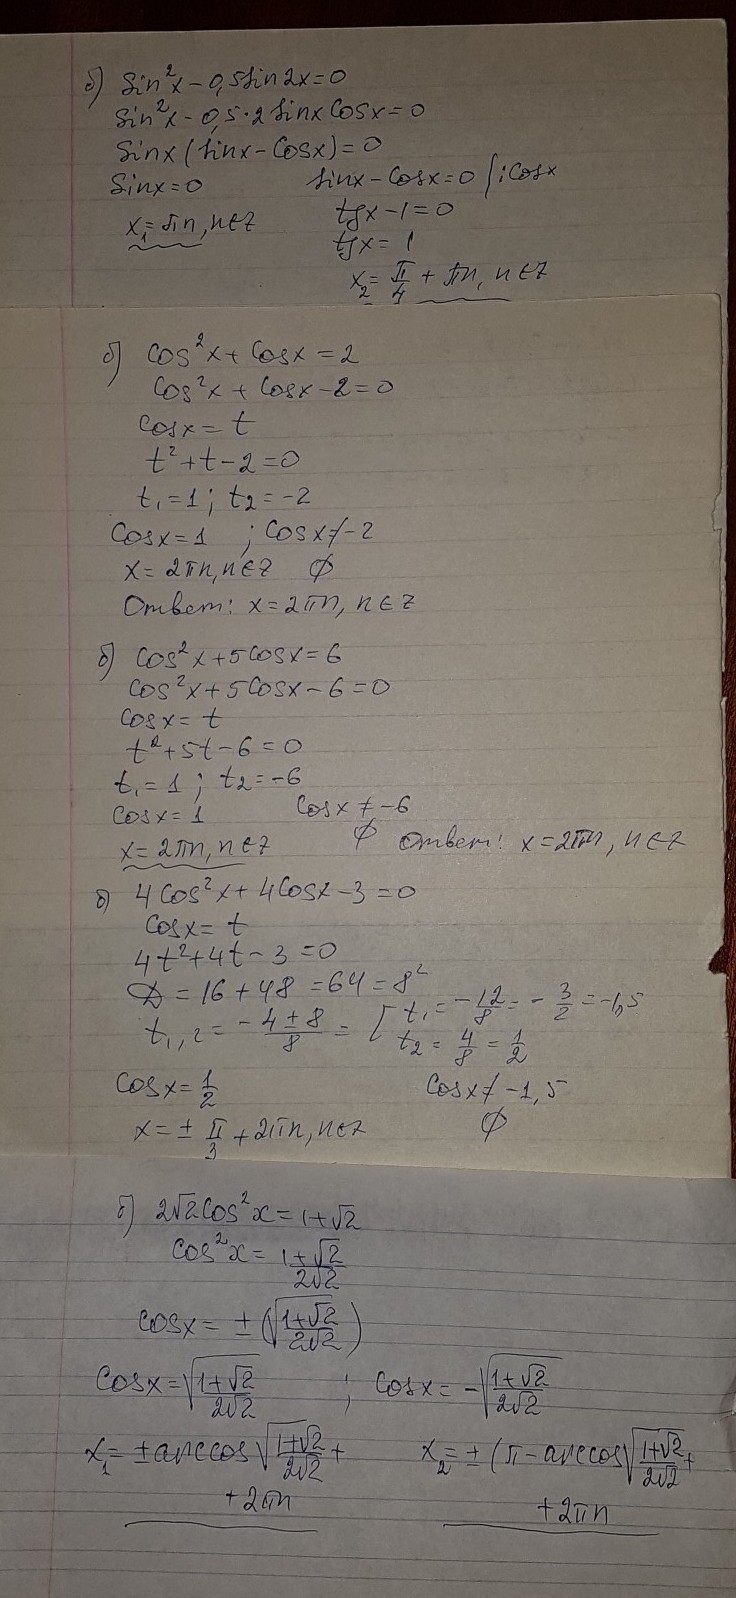 б) sin²x - 0,5sin2x = 0
sin²x - 0,5·2 sinx cosx = 0
sinx (sinx - cosx) = 0
sinx = 0 sinx - cosx = 0 | : cosx
x₁ = πn, n∈z tgx - 1 = 0
tgx = 1
x₂ = π/4 + πn, n∈z
б) cos²x + cosx = 2
cos²x + cosx - 2 = 0
cosx = t
t² + t - 2 = 0
t₁ = 1 ; t₂ = -2
cosx = 1 ; cosx ≠ -2
x = 2πn, n∈z ∅
Ответ: x = 2πn, n∈z
б) cos²x + 5cosx = 6
cos²x + 5cosx - 6 = 0
cosx = t
t² + 5t - 6 = 0
t₁ = 1 ; t₂ = -6
cosx = 1 cosx ≠ -6
x = 2πn, n∈z ∅ Ответ: x = 2πn, n∈z
б) 4cos²x + 4cosx - 3 = 0
cosx = t
4t² + 4t - 3 = 0
D = 16 + 48 = 64 = 8²
t₁,₂ = (-4 ± 8)/8 = [ t₁ = -12/8 = -3/2 = -1,5
t₂ = 4/8 = 1/2
cosx = 1/2 cosx ≠ -1,5
x = ± π/3 + 2πn, n∈z ∅
б) 2√2cos²x = 1+√2
cos²x = (1+√2)/(2√2)
cosx = ± (√((1+√2)/(2√2)))
cosx = √((1+√2)/(2√2)) ; cosx = -√((1+√2)/(2√2))
x₁ = ± arccos √((1+√2)/(2√2)) + x₂ = ± (π - arccos √((1+√2)/(2√2)) +
+ 2πn + 2πn